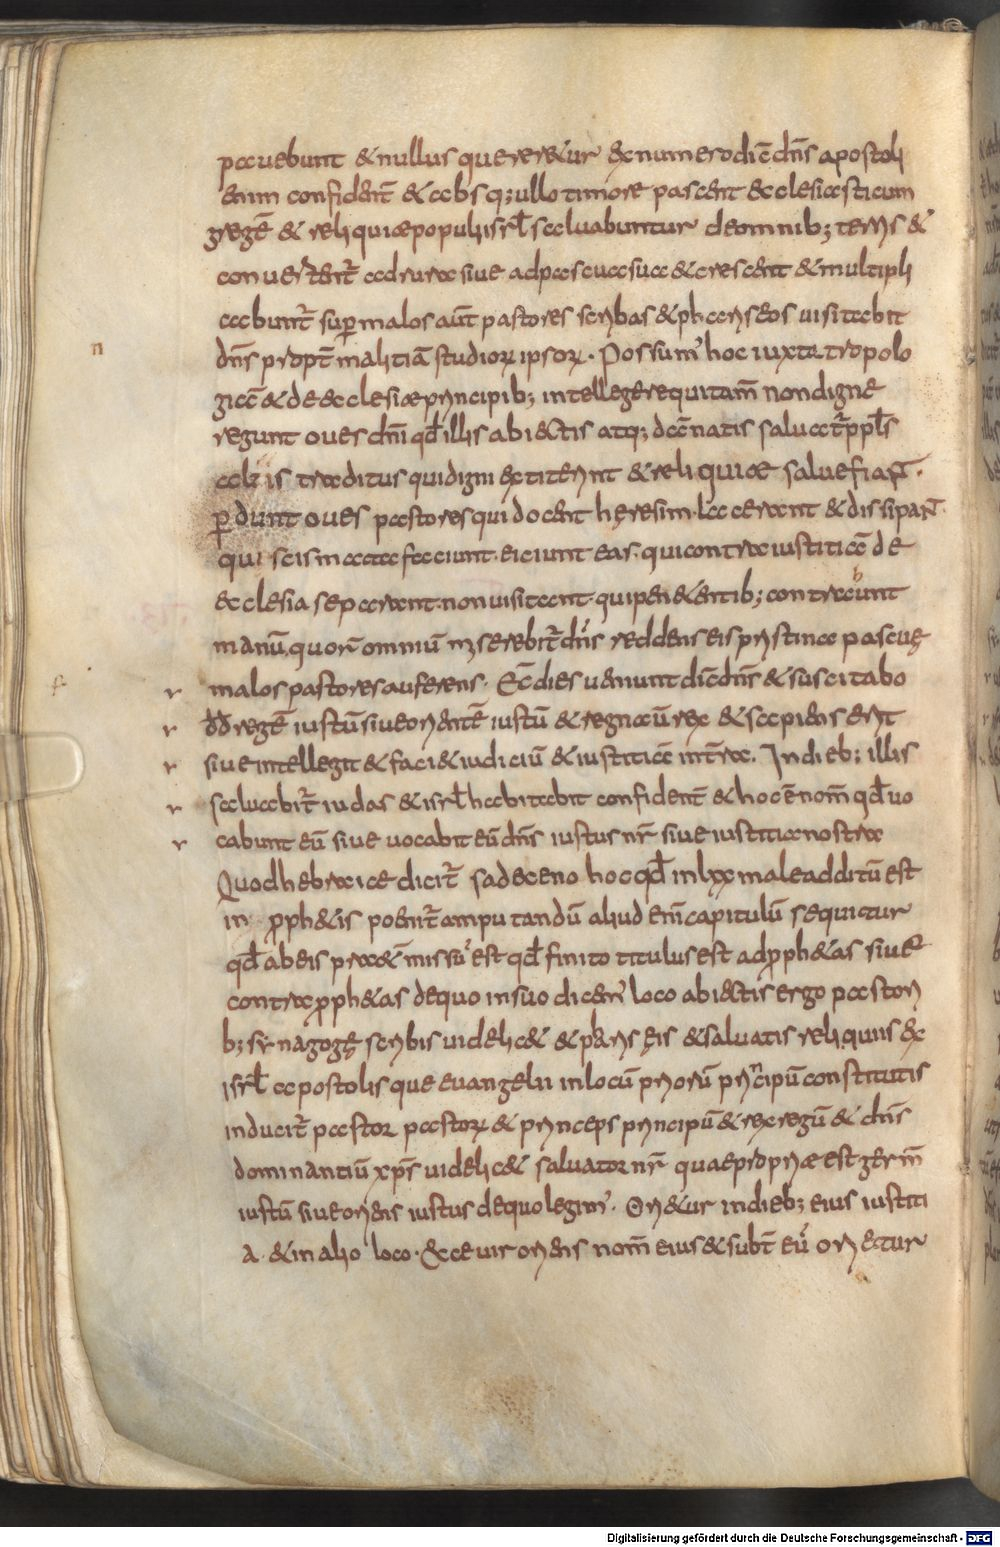 pauebunt & nullus quereretur ex numero dic̄ dn̄s apostoli
enim confident̄ & absq; ullo timore pascent ecclesiasticum
gregē & reliquiae populi isrl̄ saluabuntur de omnib; terris &
conuertent̄ ad rura siue ad pascua sua & crescent & multipli
cabunt̄ sup̱ malos aut̄ pastores scribas & phariseos uisitabit
dn̄s propt̄ malitiā studioꝝ ipsoꝝ. Possum' hoc iuxta tropolo
giā & de ecclesiae principib; intellegere qui tam̄ non digne
regunt oues dn̄i qd̄ illis abiectis atq; dānatis saluat̄ ppl̄s
aliis traditus qui digni extiterint & reliquiae salue fiant̄.
ꝑdunt oues pastores qui docent hęresim. lacerant & dissipant̄
qui scismata faciunt. eiciunt eas. qui contra iustitiā de
ecclesia separant. non uisitant. qui penitentib; contrabunt
manū. quorū omniū miserebit̄ dn̄s reddens eis pristina pascuę
malos pastores auferens. Ecc̄ dies ueniunt dic̄ dn̄s & suscitabo
r dd̄ regē iustū siue orientē iustū & regnauit rex & sapiens erit
r siue intellegit & faciet iudiciū & iustitiā in tr̄a. In dieb; illis
r saluabit̄ iudas & isrl̄ habitabit confident̄ & hoc ē nom̄ qd̄ uo
r cabunt eū siue uocabit eū dn̄s iustus nr̄ siue iustitia nostra
Quod hebraice dicit̄ sadeceno hoc qd̄ in lxx male additū est
in ꝓphetis ponit̄ amputandū aliud eni̅ capitulū sequitur
qd̄ ab eis praet̄missū est qd̄ finito titulus est ad ꝓphetas siue
contra ꝓphetas de quo in suo dicem' loco abiectis ergo pastori
b; synagogę scribis uidelicet & phariseis & saluatis reliquiis ex
isrl̄ apostolisque euangelii in locū priorū principū constitutis
inducit̄ pastor pastorꝝ & princeps principū & rex regū & dn̄s
dominantiū xp̄s uidelicet saluator nr̄ quae propriae est germ̄
iustū siue oriens iustus de quo legim'. Orietur in dieb; eius iustiti
a. & in alio loco. Ecce uir oriens nom̄ eius & subt̄ eū orietur
n
f
r
Digitalisierung gefördert durch die Deutsche Forschungsgemeinschaft - DFG